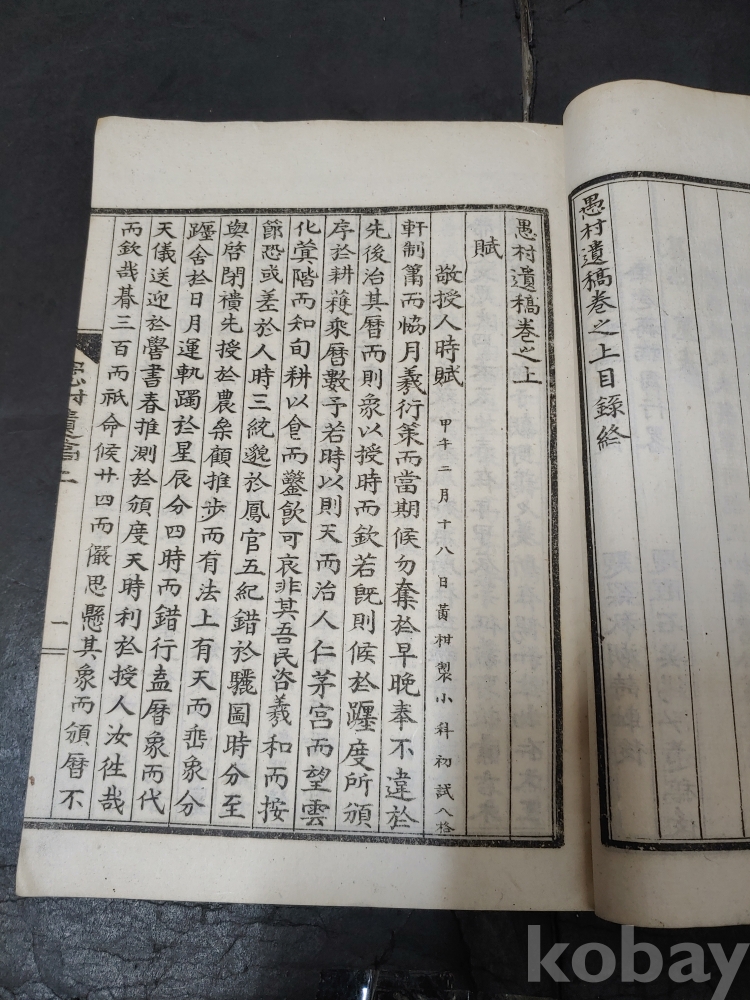 愚村遺稿卷之上目錄終
愚村遺稿卷之上
賦
敬授人時賦 甲午二月十八日黃柑製小科初試入格
軒制篇而恊月羲衍策而當期候勿奪於早晚奉不違於
先後治其曆而則象以授時而欽若旣則候於躔度所頒
序於耕穫乘曆數予若時以則天而治人仁茅宮而望雲
化蓂階而知旬耕以食而鑿飮可哀非其吾民咨羲和而按
節恐或差於人時三統邈於鳳官五紀錯於驪圖時分至
與啓閉襀先授於農桒顧推步而有法上有天而垂象分
躔舍於日月運軌躅於星辰分四時而錯行盍曆象而代
天儀送迎於嚳書春推測於頒度天時利於授人汝徃哉
而欽哉朞三百而祇命候廿四而儼思懸其象而頒曆不
愚村遺稿上
一
kobay